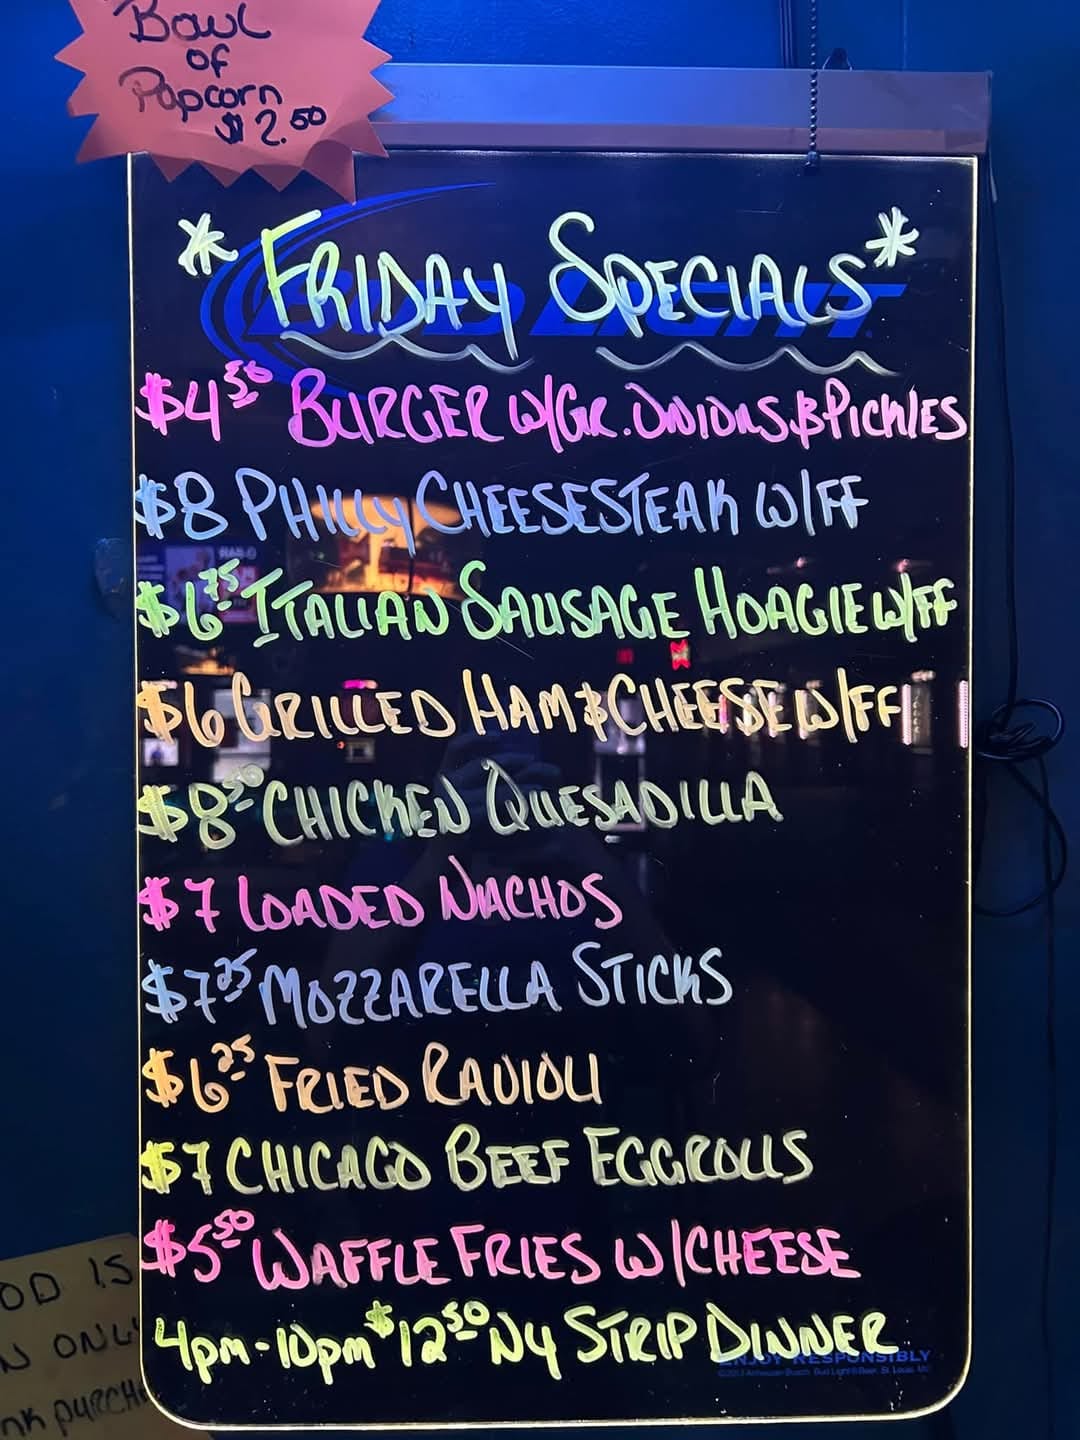 Bowl
of
Popcorn
$2.50
* FRIDAY SPECIALS *
BUD LIGHT
$4.50 BURGER W/GR. ONIONS & PICKLES
$8 PHILLY CHEESESTEAK W/FF
$6.75 ITALIAN SAUSAGE HOAGIE W/FF
$6 GRILLED HAM & CHEESE W/FF
$8.50 CHICKEN QUESADILLA
$7 LOADED NACHOS
$7.25 MOZZARELLA STICKS
$6.25 FRIED RAVIOLI
$7 CHICAGO BEEF EGGROLLS
$5.50 WAFFLE FRIES W/CHEESE
4pm-10pm $12.50 NY STRIP DINNER
ENJOY RESPONSIBLY
IS
ONLY